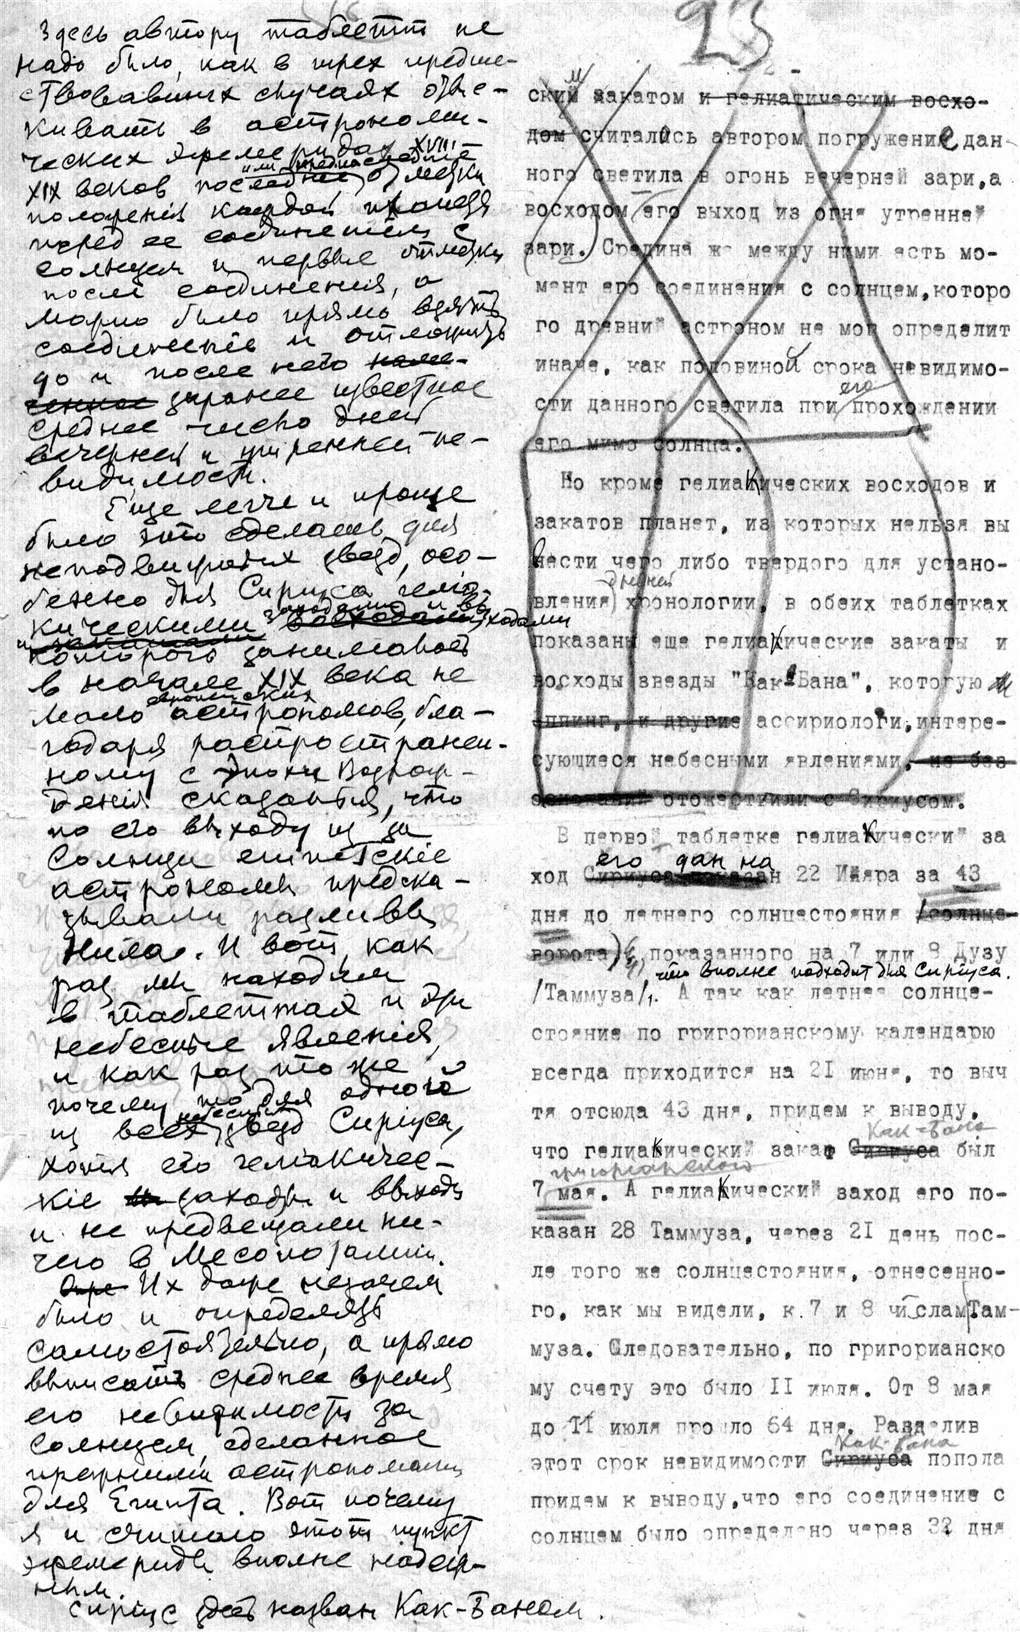 23
Здесь автору таблетт не
надо было, как в трех предше-
ствовавших случаях отыс-
кивать в астрономи-
ческих эфемеридах XVIII
или
XIX веков последние отметки
положенія каждой планеты
перед ее соединеніем с
солнцем и первые отметки
после соединенія, а
можно было прямо взять
соединеніе и отложить
до и после него
заранее известное
среднее число дней
вечерней и утренней не-
видимости.
Еще легче и проще
было это сделать для
неподвижных звезд, осо-
бенно для Сиріуса, гелиа-
кическими заходами и вы-
ходами
которого занималось
в начале XIX века не
мало европейских астрономов, бла-
годаря распространен-
ному с эпохи Возрож-
денія сказанью, что
по его выходу из за
Солнца египетскіе
астрономы предска-
зывали разливы
Нила. И вот, как
раз мы находим
в таблеттах и эти
небесные явленія,
и как раз то же
почему то для одного
из всех небесных звезд Сиріуса,
хотя его геліакичес-
кіе заходы и выходы
и не предвещали ни-
чего в Месопотаміи.
Их даже незачем
было и определять
самостоятельно, а прямо
выписать среднее время
его невидимости за
Солнцем, сделанное
прежними астрономами
для Египта. Вот почему
я и считаю этот пункт
эфемериды вполне надеж-
ным.
Сиріус здесь назван Как-Баном.
ским закатом и гелиатическим восхо-
дом считались автором погружение дан-
ного светила в огонь вечерней зари, а
восходом его выход из огня утренней
зари. Средина же между ними есть мо-
мент его соединения с солнцем, которо
го древний астроном не мог определит
иначе, как половиной срока невидимо-
его
сти данного светила при прохождении
его мимо солнца.
Но кроме гелиакических восходов и
закатов планет, из которых нельзя вы
вести чего либо твердого для устано-
древней
вления хронологии, в обеих таблетках
показаны еще гелиакические закаты и
восходы звезды "Как-Бана", которую
ппинг, и другие ассириологи, интере-
сующиеся небесными явлениями, не без
оснований отожествили с Сириусом.
В первой таблетке гелиакический за
его дан на
ход Сириуса показан 22 Ийяра за 43
дня до летнего солнцестояния /солнце-
ворота/, показанного на 7 или 8 Дузу
что вполне подходит для Сиріуса.
/Таммуза/. А так как летнее солнце-
стояние по григорианскому календарю
всегда приходится на 21 июня, то выч
тя отсюда 43 дня, придем к выводу,
Как-Бана
что гелиакический закат Сириуса был
григорианского
7 мая. А гелиакический заход его по-
казан 28 Таммуза, через 21 день пос-
ле того же солнцестояния, отнесенно-
го, как мы видели, к 7 и 8 числам Там-
муза. Следовательно, по григорианско
му счету это было 11 июля. От 8 мая
до 11 июля прошло 64 дня. Разделив
Как-Бана
этот срок невидимости Сириуса попола
придем к выводу, что его соединение с
солнцем было определено через 32 дня